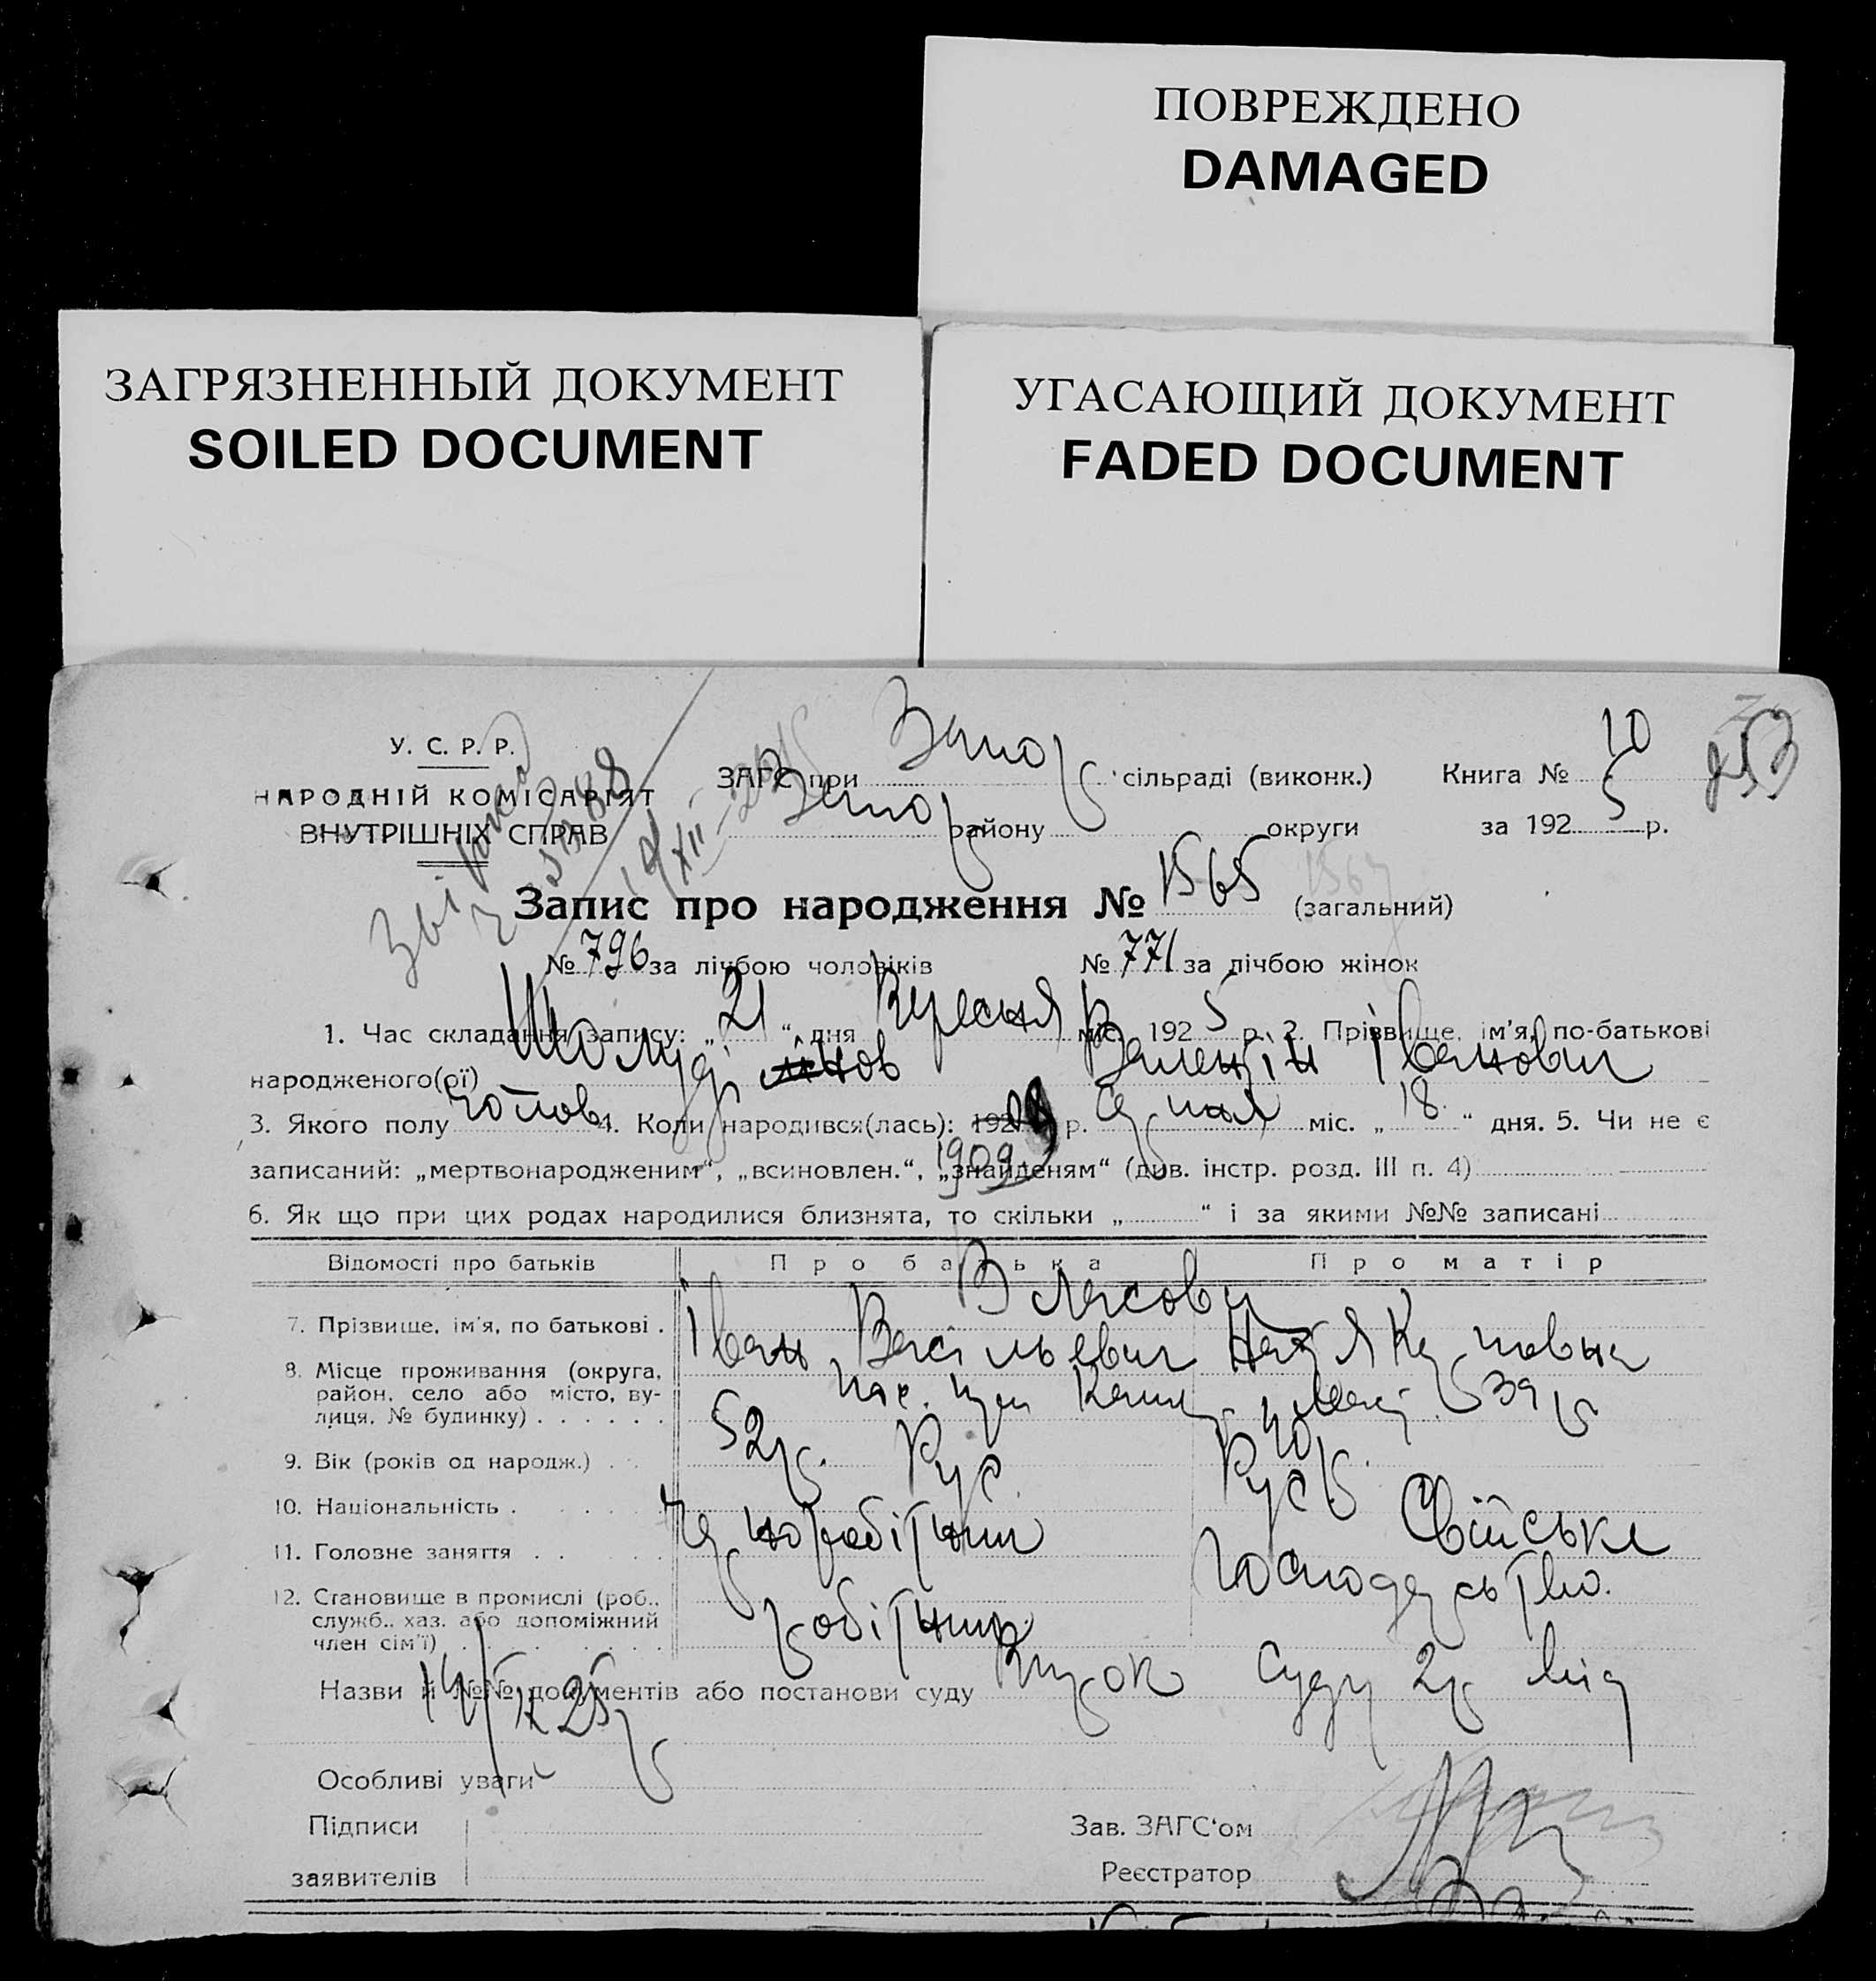 ПОВРЕЖДЕНО
DAMAGED
ЗАГРЯЗНЕННЫЙ ДОКУМЕНТ
SOILED DOCUMENT
УГАСАЮЩИЙ ДОКУМЕНТ
FADED DOCUMENT
У. С. Р. Р.
НАРОДНІЙ КОМІСАРІЯТ
ВНУТРІШНІХ СПРАВ
ЗАГС при Запор сільраді (виконк.) Книга № 10
Запор району округи за 1925 р.
Запис про народження № 1565 (загальний)
№ 796 за лічбою чоловіків № 771 за лічбою жінок
1. Час складання запису: „21“ дня Вересня міс. 1925 р. 2. Прізвище, ім'я, по-батькові
народженого(ої) Валентін Іванович
3. Якого полу чолов 4. Коли народився(лась): 192 р. міс. „18“ дня. 5. Чи не є
1909
записаний: „мертвонародженим“, „всиновлен.“, „знайденям“ (див. інстр. розд. III п. 4)
6. Як що при цих родах народилися близнята, то скільки „ “ і за якими №№ записані
Відомості про батьків Про батька Про матір
Власови
7. Прізвище, ім'я, по батькові . Іван Васільевич
8. Місце проживання (округа,
район, село або місто, ву-
лиця, № будинку) . . . . . .
9. Вік (років од народж.) . . 52р. 40р.
10. Національність . . . . . Рус. Рус
11. Головне заняття . . . . Чорноробітник Свійське
господарьство.
12. Становище в промислі (роб.,
служб., хаз. або допоміжний
член сім'ї) . . . . . . . робітник
Назви й №№ документів або постанови суду Вирок суду 2р від
14/IX 25р
Особливі уваги
Підписи
заявителів
Зав. ЗАГС'ом
Реєстратор